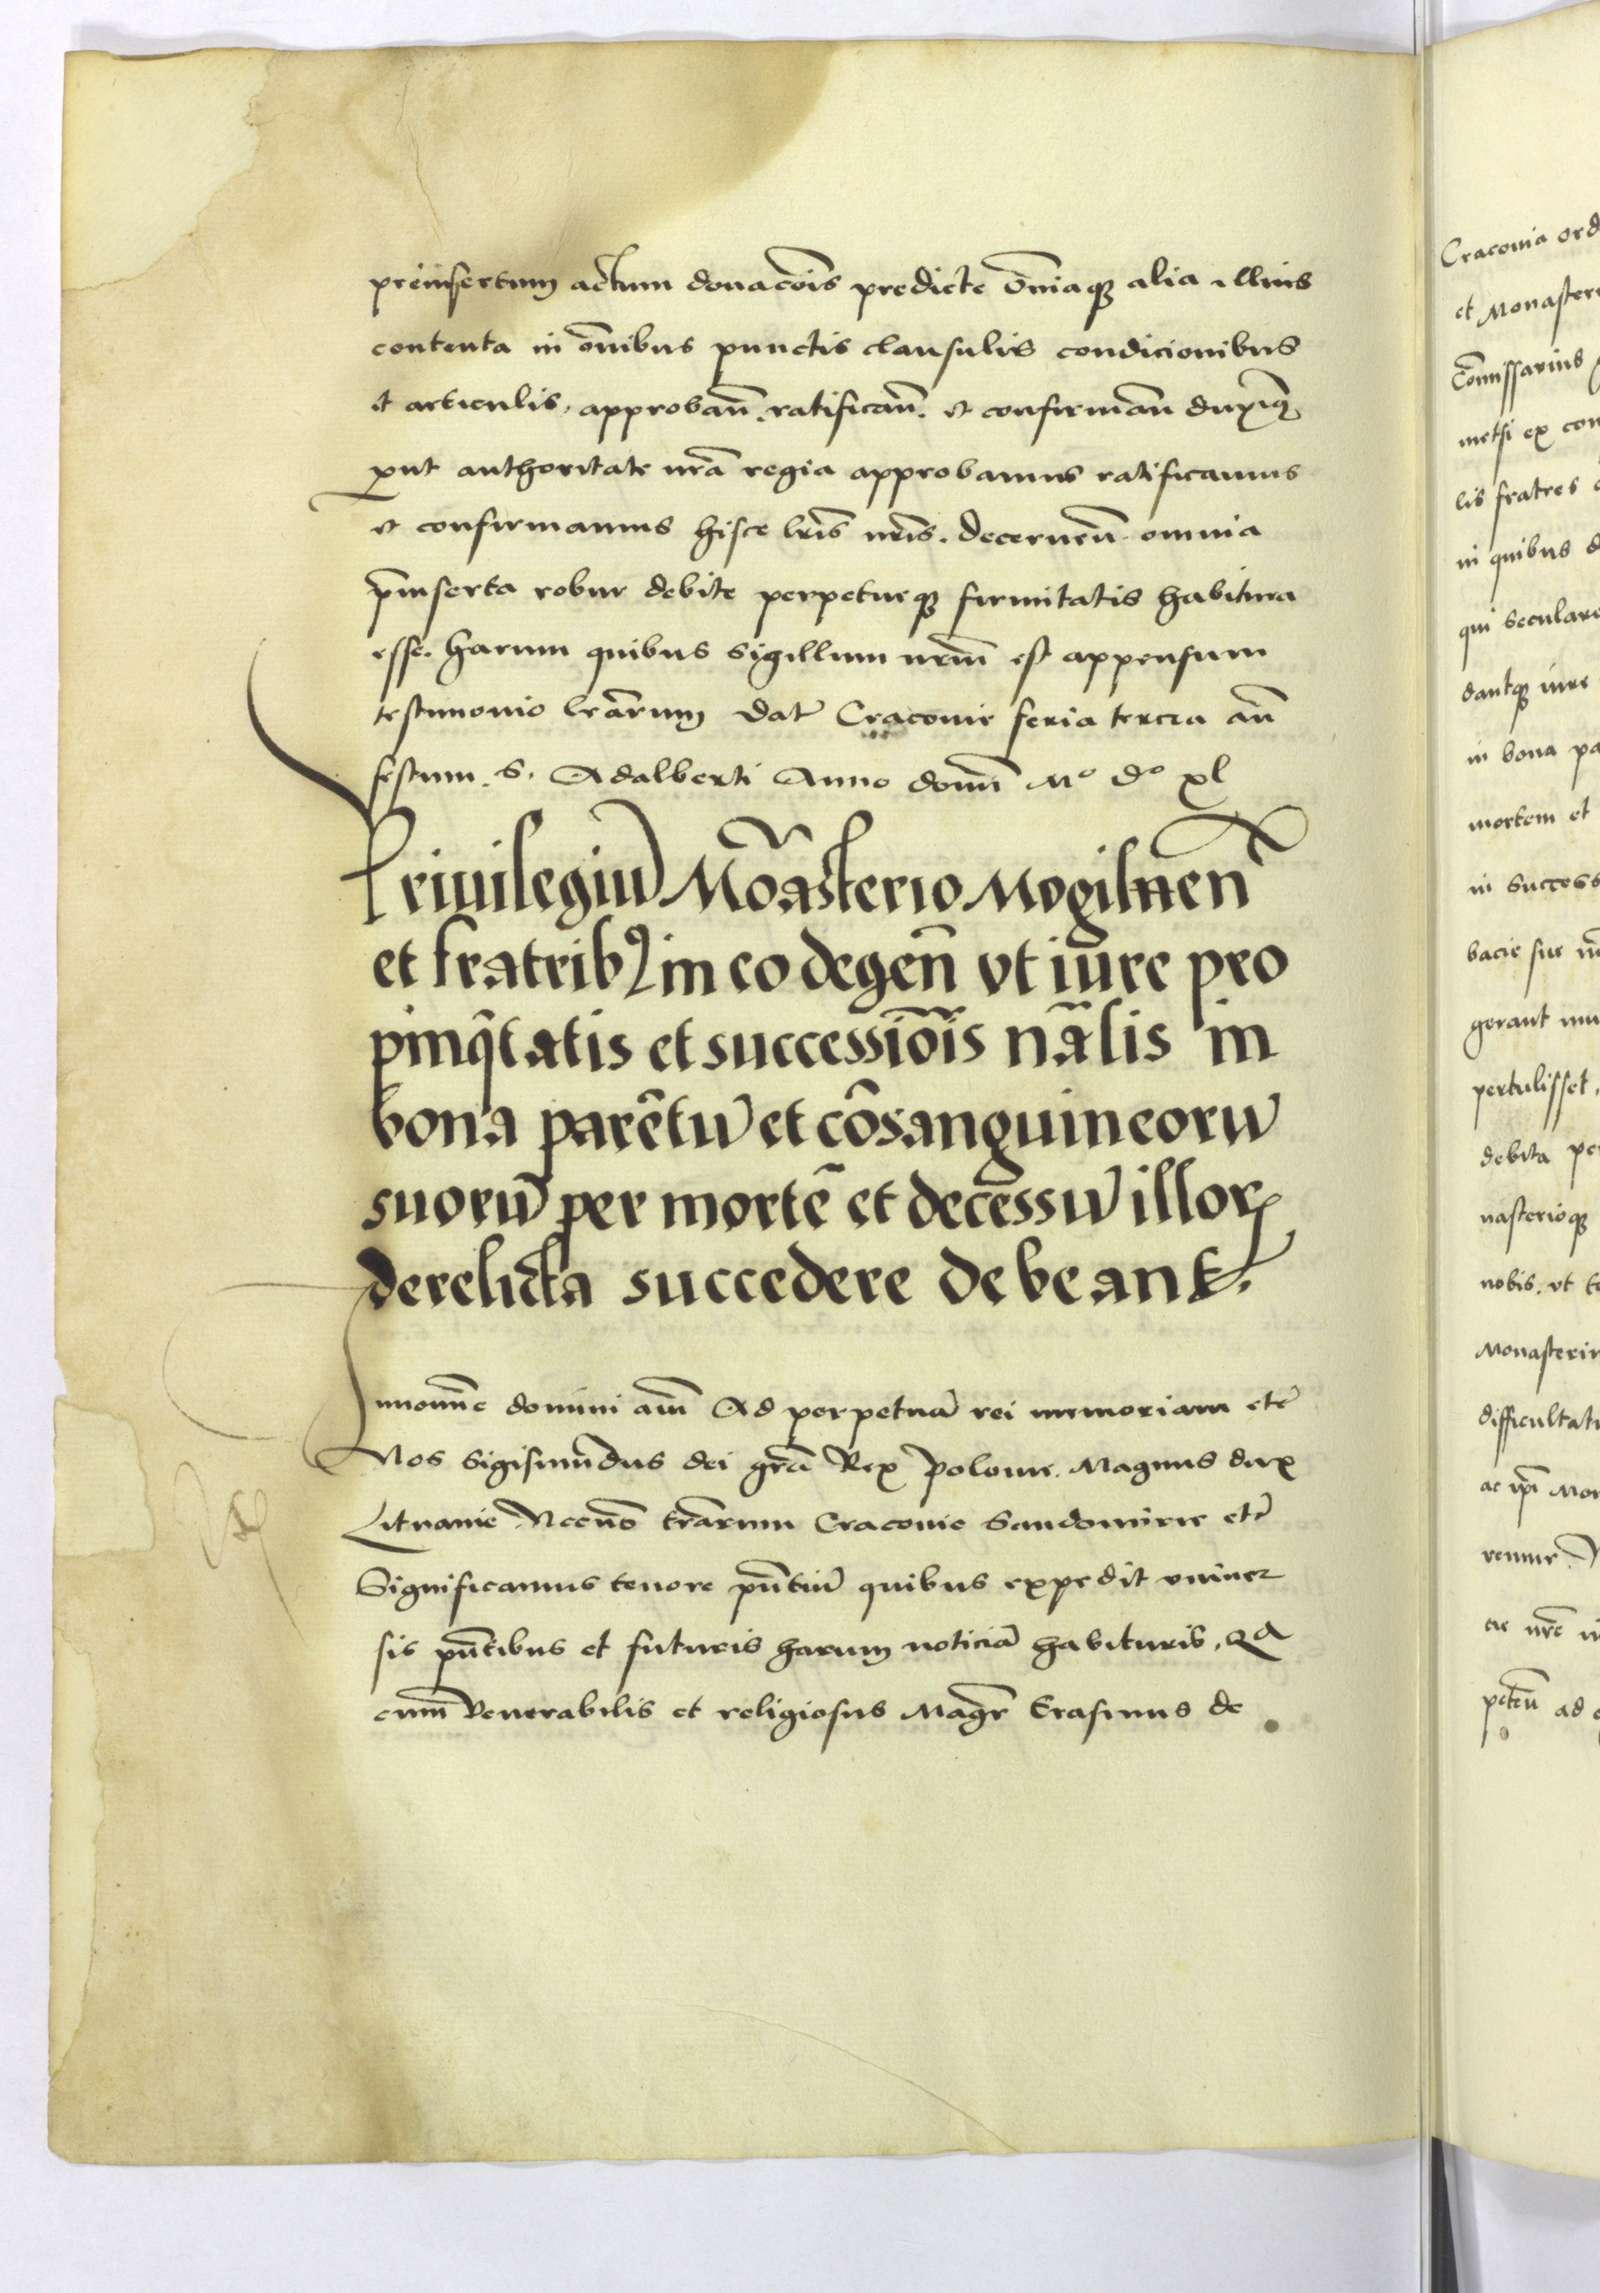 preinsertum actum donacoīs predicte ōmiaqꝫ alia illius
contenta in ōnibus punctis clausulis condicionibus
et articulis, approbań. ratificań. et confirmań duximꝰ
put authoritate nrā regia approbamus ratificamus
et confirmamus hisce lrīs nrīs. Decerneń omnia
p̄inserta robur debite perpetueqꝫ firmitatis habitura
esse. harum quibus sigillum nrm̄ est appensum
testimonio lrārum Dat̄ Cracovie feria tercia añ
festum. S. Adalberti Anno domī Mº Dº xl
Privilegiū Mōasterio Mogilnen̄
et fratribꝰ in eo degen̄ vt iure pro
pinq̄tatis et successiōis nālis in
bona parētū et cōsanguineorū
suorū per mortē et decessū illorꝝ
derelicta succedere debeant.
In noīe domini am̄ Ad perpetuā rei memoriam etc̄
Nos Sigismūdus dei grā Rex Polonie. Magnus dux
Lituanie Necnō trārum Cracovie Sandomirie etc̄
Significamus tenore pn̄tiū quibus expedit vniuer
sis pn̄tibus et futuris harum noticiā habituris, Qd
cum Venerabilis et religiosus Magr̄ Erasmus de
Craconia ord
et Monasteri
Cōmissarius
metsi ex con
lis fratres
in quibus d
qui secular
dantqꝫ iure
in bona pa
mortem et
in success
bacie sue
gerant
pertulisset,
debita per
nasterioqꝫ
nobis. vt
Monasteriu
difficultat
ac ip̄i Mon
remur.
cie nrē
peten̄ ad